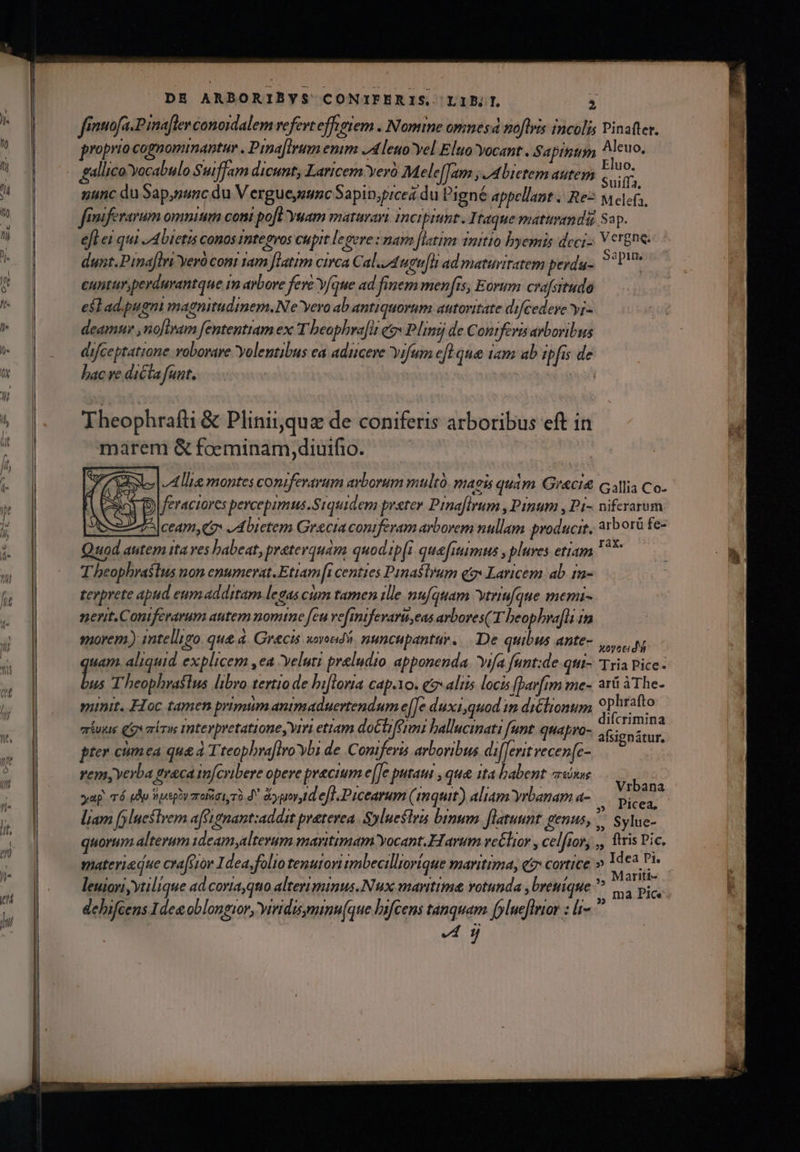 DE ARBORIBVS CONIFERIS, LIB. I. 2
sinuosa. Pinaster conoidalem refert effigiem. Nomine omnes à nostris incolis Pinaster.
proprio cognominantur. Pinastrum enim Aleuo vel Eluo vocant. Sapinum Aleuo.
gallico vocabulo Suiffam dicunt, Laricem verò Melessam, Abietem autem Eluo. Suiffa,
nunc du Sap, nunc du Vergue, nunc Sapin, piceã du Pigné appellant. Re- Melesa,
siniferarum omnium coni post vuam maturari incipiunt. Itaque maturandis Sap.
est ei qui Abietis conos integros cupit legere: nam statim initio hyemis deci- Vergne.
dunt. Pinastri verò coni iam statim circa Cal. Augusti ad maturitatem perdu- Sapin.
cuntur, perdurantque in arbore ferè vsque ad finem mensis, Eorum crassitudo
est ad pugni magnitudinem. Ne vero ab antiquorum autoritate discedere vi-
deamur, nostram sententiam ex Theophrasti & Plinij de Coniferis arboribus
disceptatione roborare volentibus ea adiicere visum est quæ iam ab ipsis de
hac re dicta sunt.
Theophrasti & Plinii, quæ de coniferis arboribus est in
marem & fœminam, diuisio.
Alliæ montes coniferarum arborum multò magis quàm Græciæ Gallia Co-
feraciores percepimus. Siquidem præter Pinastrum, Pinum, Pi- niferarum
ceam, & Abietem Græcia coniferam arborem nullam producit. arborũ fe-
Quod autem ita res habeat, præterquàm quod ipsi quæsiuimus, plures etiam rax.
Theophrastus non enumerat. Etiamsi centies Pinastrum & Laricem ab in-
terprete apud eum additam legas cùm tamen ille nusquam vtriusque memi-
nerit. Coniferarum autem nomine seu resiniferariis, eas arbores (Theophrasti in
morem) intelligo quæ à Græcis κονοειδῆ nuncupantur. De quibus ante- κονοειδῆ
quam aliquid explicem, ea veluti præludio apponenda visa sunt: de qui- Tria Pice-
bus Theophrastus libro tertio de historia cap. 10. & aliis locis sparsim me- arũ à The-
minit. Hoc tamen primùm animaduertendum esse duxi, quod in dictionum ophrasto
πεύκης & πίτυς interpretatione, viri etiam doctissimi hallucinati sunt quapro- discrimina
pter cùm ea quæ à Tteophrastro vbi de Coniferis arboribus disserit recense- assignãtur.
rem, verba græca inscribere opere precium esse putaui, quæ ita habent πεύκης
γαρ τὸ μὲν ἥμερὸν ποιοῦσι, τὸ δ' ἄγριον, id est. Picearum (inquit) aliam vrbanam a- Vrbana
liam syluestrem assignant: addit præterea Syluestris binum statuunt genus, „ Picea, „ Sylue-
quorum alterum ideam, alterum maritimam vocant. Harum rectior, celsior, „ stris Pic.
materiæque crassior Idea, folio tenuiori imbecilliorique maritima, & cortice » Idea Pi.
leuiori, vtilique ad coria, quo alteri minus. Nux maritimæ rotunda, breuique » Mariti-
dehiscens Ideæ oblongior, viridis, minusque hiscens tanquam syluestrior : li- » ma Pice
A ij